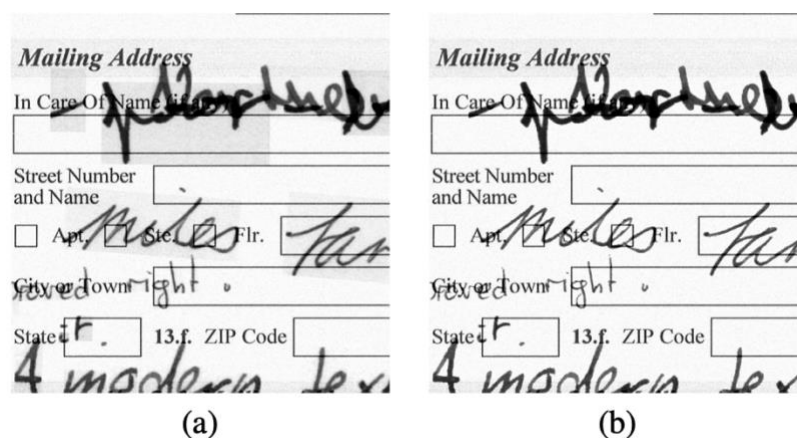 Mailing Address
In Care Of Name (if any)
Street Number
and Name
miles
Apt. Ste. Flr.
City or Town
right .
State
it.
13.f. ZIP Code
4 modern
(a)
Mailing Address
In Care Of Name (if any)
Street Number
and Name
miles
Apt. Ste. Flr.
City or Town
right .
State
it.
13.f. ZIP Code
4 modern
(b)